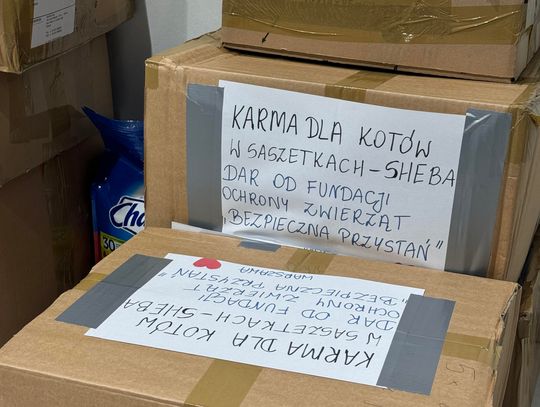 KARMA DLA KOTÓW
W SASZETKACH - SHEBA
DAR OD FUNDACJI
OCHRONY ZWIERZĄT
„BEZPIECZNA PRZYSTAŃ”
KARMA DLA KOTÓW
W SASZETKACH - SHEBA
DAR OD FUNDACJI
OCHRONY ZWIERZĄT
„BEZPIECZNA PRZYSTAŃ
WARSZAWA
30